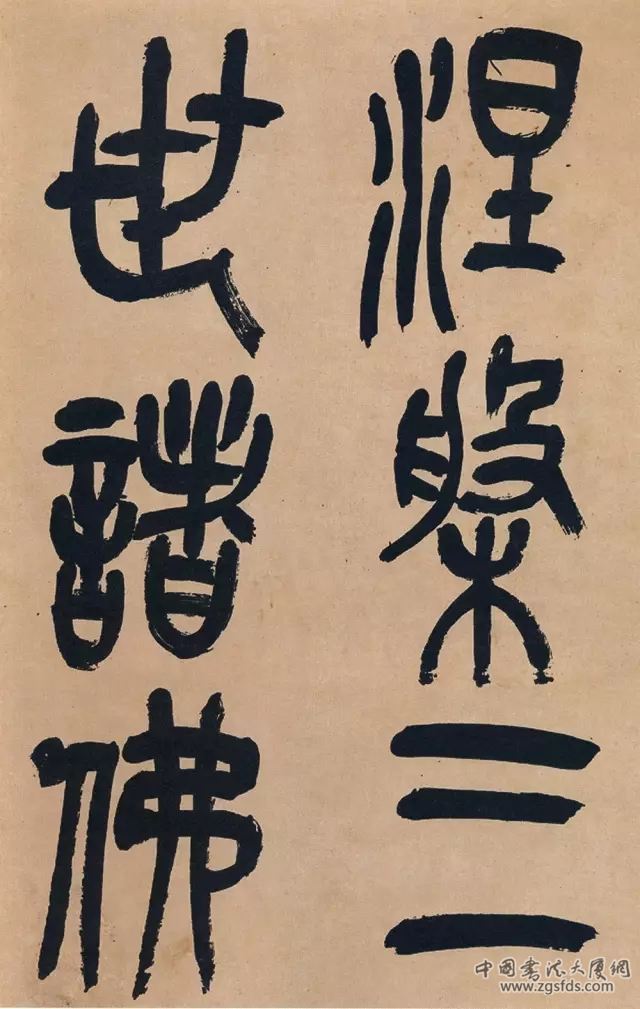 涅槃三
世諸佛
中國書法大廈網
www.zgsfds.com